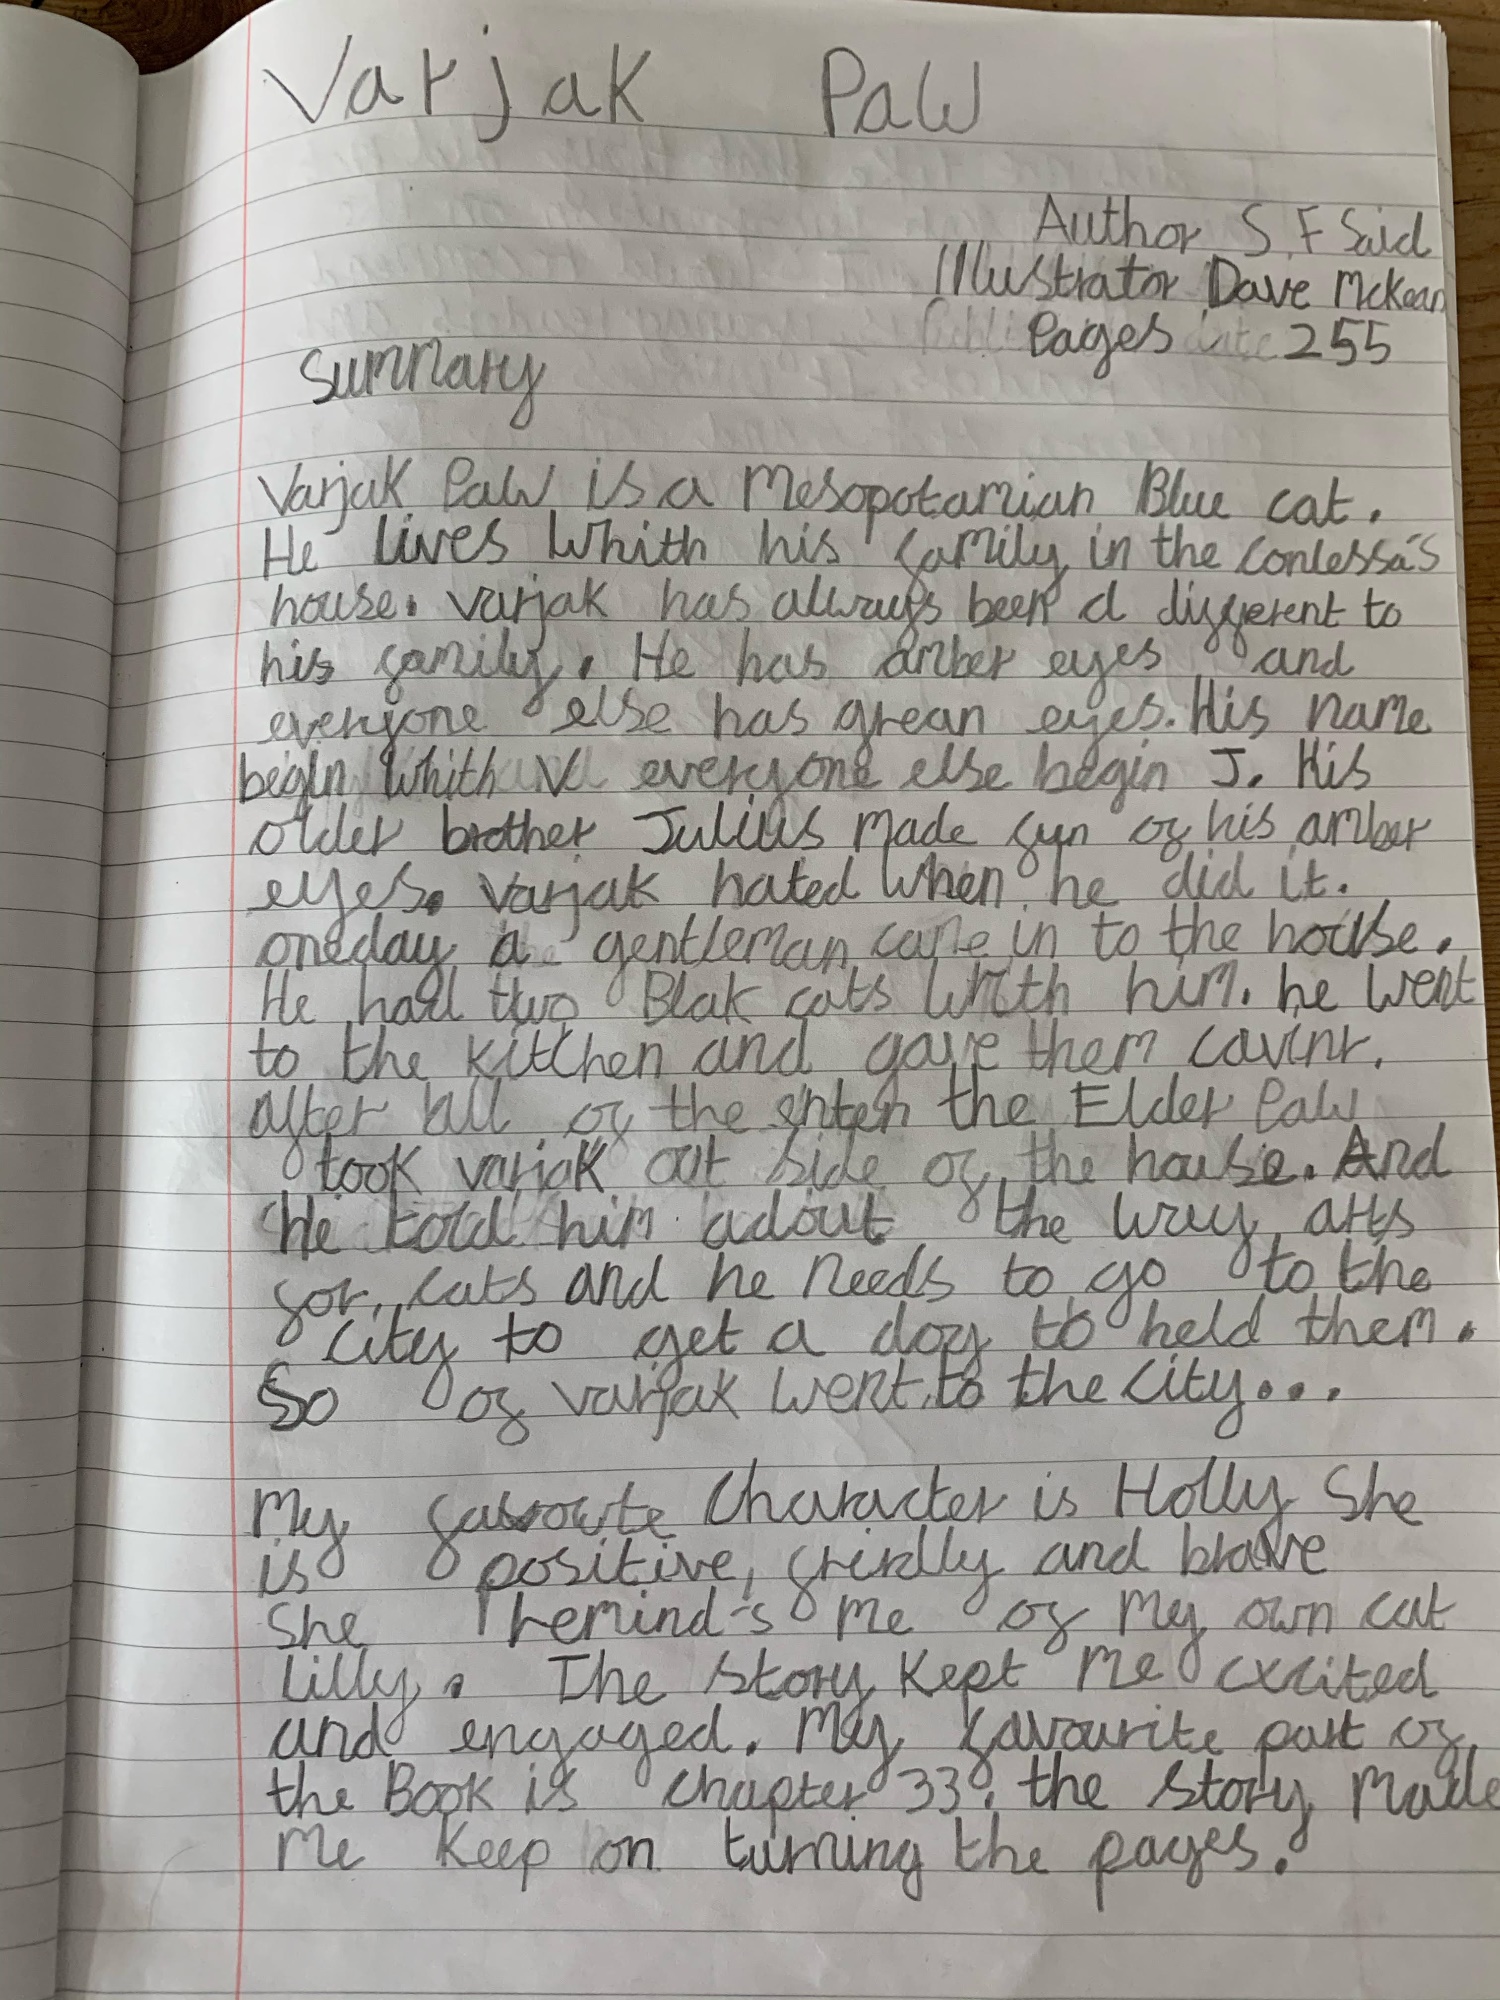 Varjak Paw
Author S F Said
Illustrator Dave McKean
Pages 255
Summary
Varjak Paw is a Mesopotamian Blue cat.
He lives Whith his family in the Contessa's
house. varjak has always been a different to
his family. He has amber eyes and
everyone else has grean eyes. His name
begin Whith V everyone else begin J. His
older brother Julius made fun of his amber
eyes. Varjak hated when he did it.
oneday a gentleman came in to the house.
He had two Blak cats Whith him. he went
to the kitchen and gave them
after all of the the Elder Paw
took varjak out side of the house. And
He told him adout the way arts
for cats and he needs to go to the
city to get a dog to held them.
So of varjak went to the city...
My Character is Holly She
is positive, and brave
She remind's me of my own cat
Lilly. The story kept me excited
and engaged. My favourite part of
the Book is chapter 33. the story made
me keep on turning the pages.